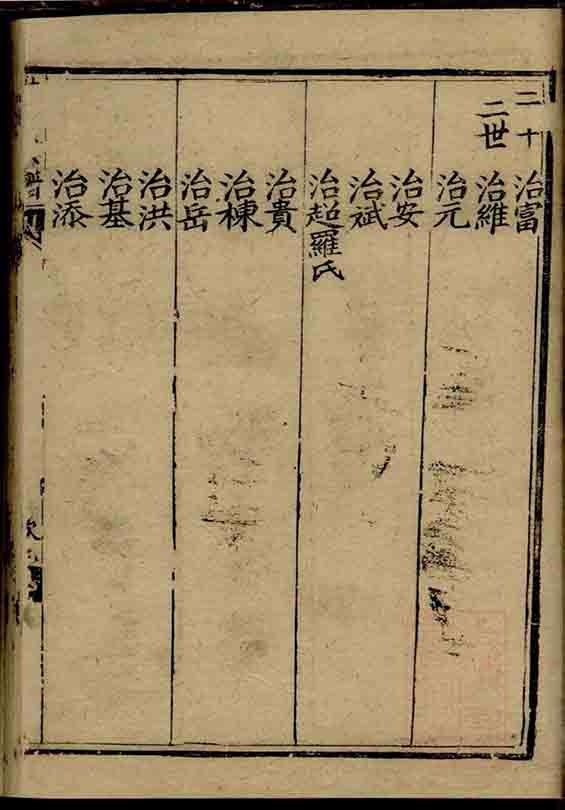 二十
二世
治富
治維
治元
治安
治斌
治超羅氏
治貴
治棟
治岳
治洪
治基
治添
譜